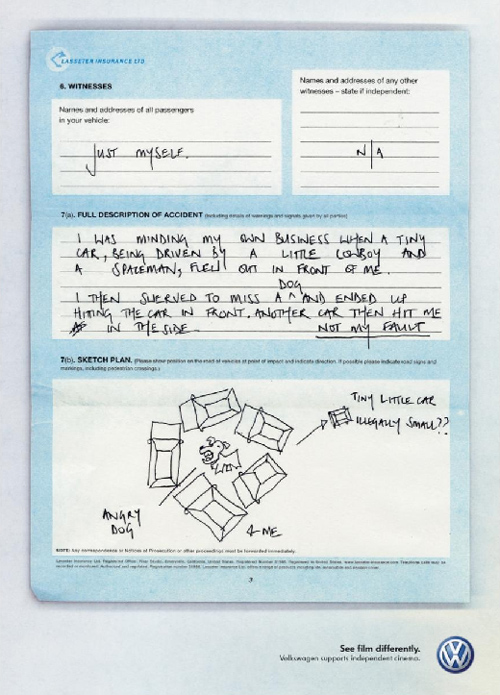 LASSETER INSURANCE LTD
6. WITNESSES
Names and addresses of all passengers
in your vehicle:
JUST MYSELF.
Names and addresses of any other
witnesses – state if independent:
N/A
7(a). FULL DESCRIPTION OF ACCIDENT (Including details of warnings and signals given by all parties)
I WAS MINDING MY OWN BUSINESS WHEN A TINY
CAR, BEING DRIVEN BY A LITTLE COWBOY AND
A SPACEMAN, FLEW OUT IN FRONT OF ME.
DOG
I THEN SWERVED TO MISS A ^ AND ENDED UP
HITING THE CAR IN FRONT. ANOTHER CAR THEN HIT ME
IN THE SIDE. NOT MY FAULT
7(b). SKETCH PLAN. (Please show position on the road of vehicles at point of impact and indicate direction. If possible please indicate road signs and
markings, including pedestrian crossings.)
TINY LITTLE CAR
ILLEGALLY SMALL??
ANGRY
DOG
ME
NOTE: Any correspondence or Notices of Prosecution or other proceedings must be forwarded immediately.
3
See film differently.
Volkswagen supports independent cinema.